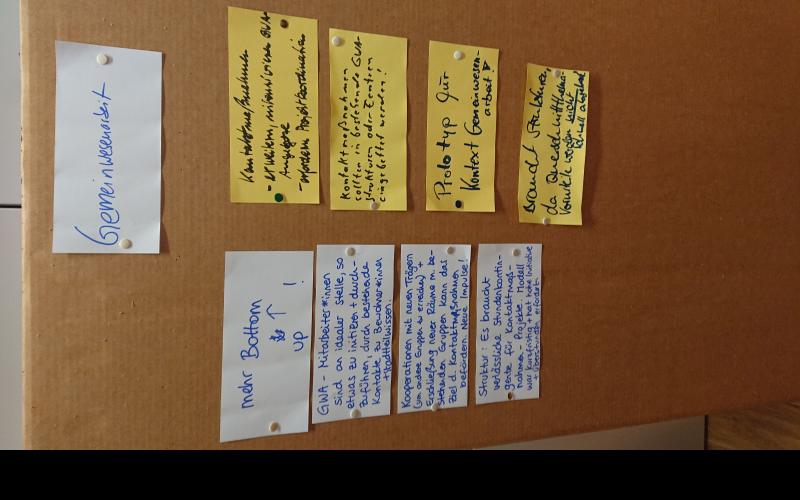 Gemeinwesenarbeit
Kontaktmaßnahmen
- erweitern, intensivieren GWA-
Angebote
- Projektkoordination
Kontaktmaßnahmen
sollten in bestehende GWA-
Strukturen oder Zentren
eingebettet werden!
Prototyp für
Kontext Gemeinwesen-
arbeit!
Braucht Struktur,
da
Vorurteile werden nicht
schnell abgebaut
mehr Bottom
up !
GWA - Mitarbeiter*innen
sind an idealer Stelle, so
etwas zu initiieren + durch-
zuführen, durch bestehende
Kontakte zu Bewohner*innen
+ Stadtteilwissen.
Kooperationen mit neuen Trägern
(um andere Gruppen zu erreichen) +
Erschließung neuer Räume m. be-
stehenden Gruppen kann das
Ziel d. Kontaktmaßnahmen
befördern. Neue Impulse!
Struktur: Es braucht
verlässliche Stundenkontin-
gente für Kontaktmaß-
nahmen - Projekte. Modell
war kurzfristig + hat hohe Initiative
+ Überstunden erfordert.